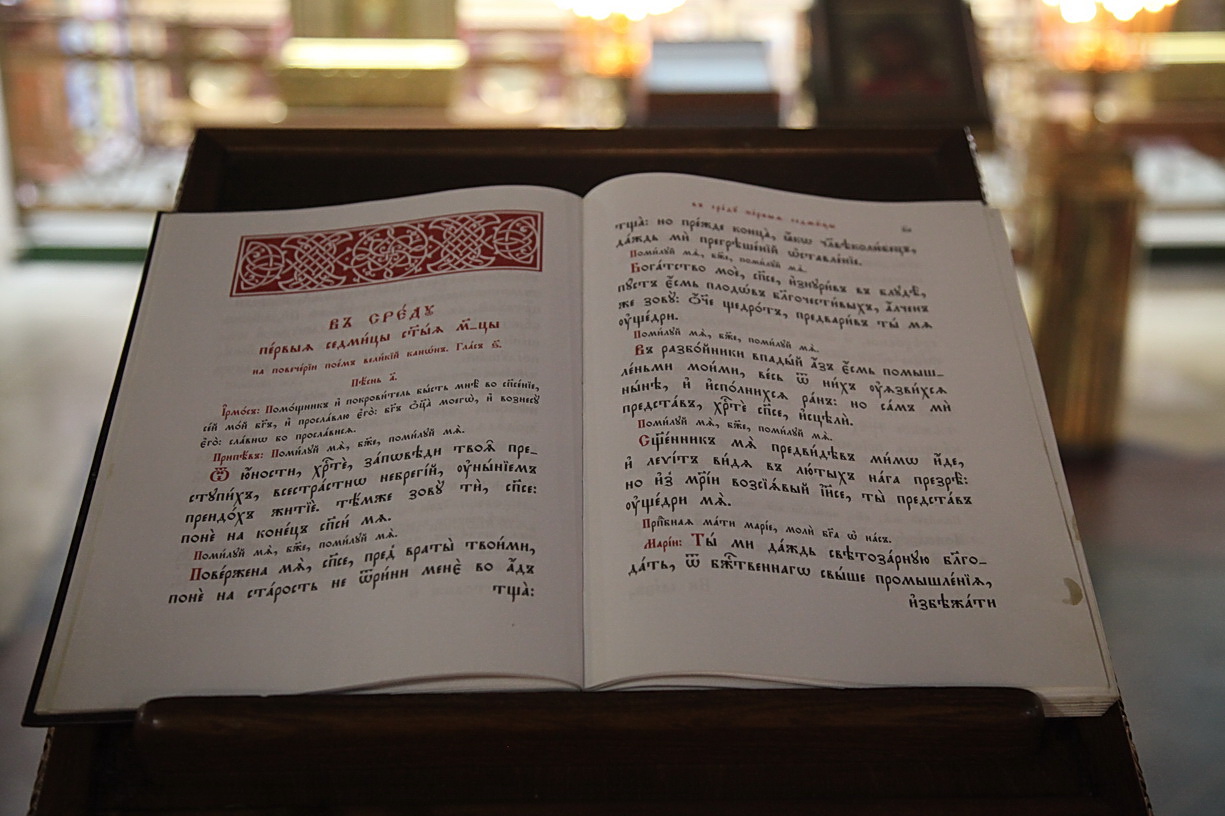 Въ сре́дꙋ
пе́рвыѧ седми́цы ст҃ы́ѧ м҃-цы
на повече́рїи пое́мъ вели́кїй канѡ́нъ. Гла́съ ѕ҃.
Пѣ́снь а҃.
І҆рмо́съ: Помо́щникъ и҆ покрови́тель бы́сть мнѣ̀ во сп҃се́нїе,
се́й мо́й бг҃ъ, и҆ просла́влю є҆го̀: бг҃ъ ѻ҆ц҃а̀ моегѡ̀, и҆ вознесꙋ̀
є҆го̀: сла́внѡ бо просла́висѧ.
Припѣ́въ: Поми́лꙋй мѧ̀, бж҃е, поми́лꙋй мѧ̀.
Ѿ ю҆́ности, хрⷭ҇тѐ, за́пѡвѣди твоѧ̑ пре-
стꙋпи́хъ, всестра́стнѡ небрегі́й, ᲂу҆ны́нїемъ
прендо́хъ житїѐ. тѣ́мже зовꙋ́ ти, сп҃се:
понѐ на коне́цъ сп҃си́ мѧ.
Поми́лꙋй мѧ̀, бж҃е, поми́лꙋй мѧ̀.
Пове́ржена мѧ̀, сп҃се, пред̾ враты̑ твои́ми,
понѐ на ста́рость не ѿри́ни менѐ во а҆́дъ
тща̀:
въ сре́дꙋ пе́рвыѧ седми́цы
тща̀: но пре́жде конца̀, ꙗ҆́кѡ чл҃вѣколю́бецъ,
да́ждь мѝ прегрѣше́нїй ѡ҆ставле́нїе.
Поми́лꙋй мѧ̀, бж҃е, поми́лꙋй мѧ̀.
Бога́тство моѐ, сп҃се, и҆знꙋри́въ въ блꙋдѣ̀,
пꙋ́стъ є҆́смь плодѡ́въ бл҃гочести́выхъ, а҆́лченъ
же зовꙋ̀: ѻ҆́ч҃е щедро́тъ, предвари́въ ты́ мѧ
ᲂу҆ще́дри.
Поми́лꙋй мѧ̀, бж҃е, поми́лꙋй мѧ̀.
Въ разбо́йники впады́й а҆́зъ є҆́смь помыш-
ле́ньми мои́ми, ве́сь ѿ ни́хъ ᲂу҆ѧзви́хсѧ
ны́нѣ, и҆ и҆спо́лнихсѧ ра́нъ: но са́мъ мѝ
предста́въ, хрⷭ҇тѐ сп҃се, и҆сцѣлѝ.
Поми́лꙋй мѧ̀, бж҃е, поми́лꙋй мѧ̀.
Сщ҃е́нникъ мѧ̀ предви́дѣвъ ми́мѡ и҆́де,
и҆ леѵі́тъ ви́дѧ въ лю́тыхъ на́га презрѣ̀:
но и҆з̾ мр҃і́и возсїѧ́вый і҆и҃се, ты̀ предста́въ
ᲂу҆ще́дри мѧ̀.
Прпⷣбнаѧ ма́ти марі́е, молѝ бг҃а ѡ҆ на́съ.
Марі́и: Ты́ ми да́ждь свѣтоза́рнꙋю бл҃го-
да́ть, ѿ бжⷭ҇твеннагѡ свы́ше промышле́нїѧ,
и҆збѣжа́ти